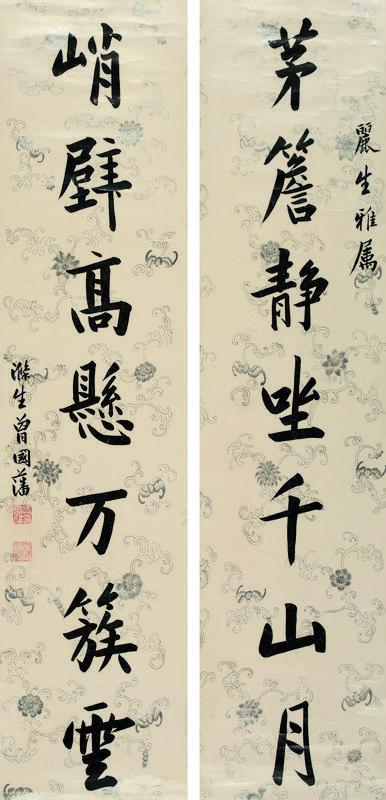 麗生雅属
茅簷静坐千山月
峭壁高懸万簇雲
滌生曾國藩